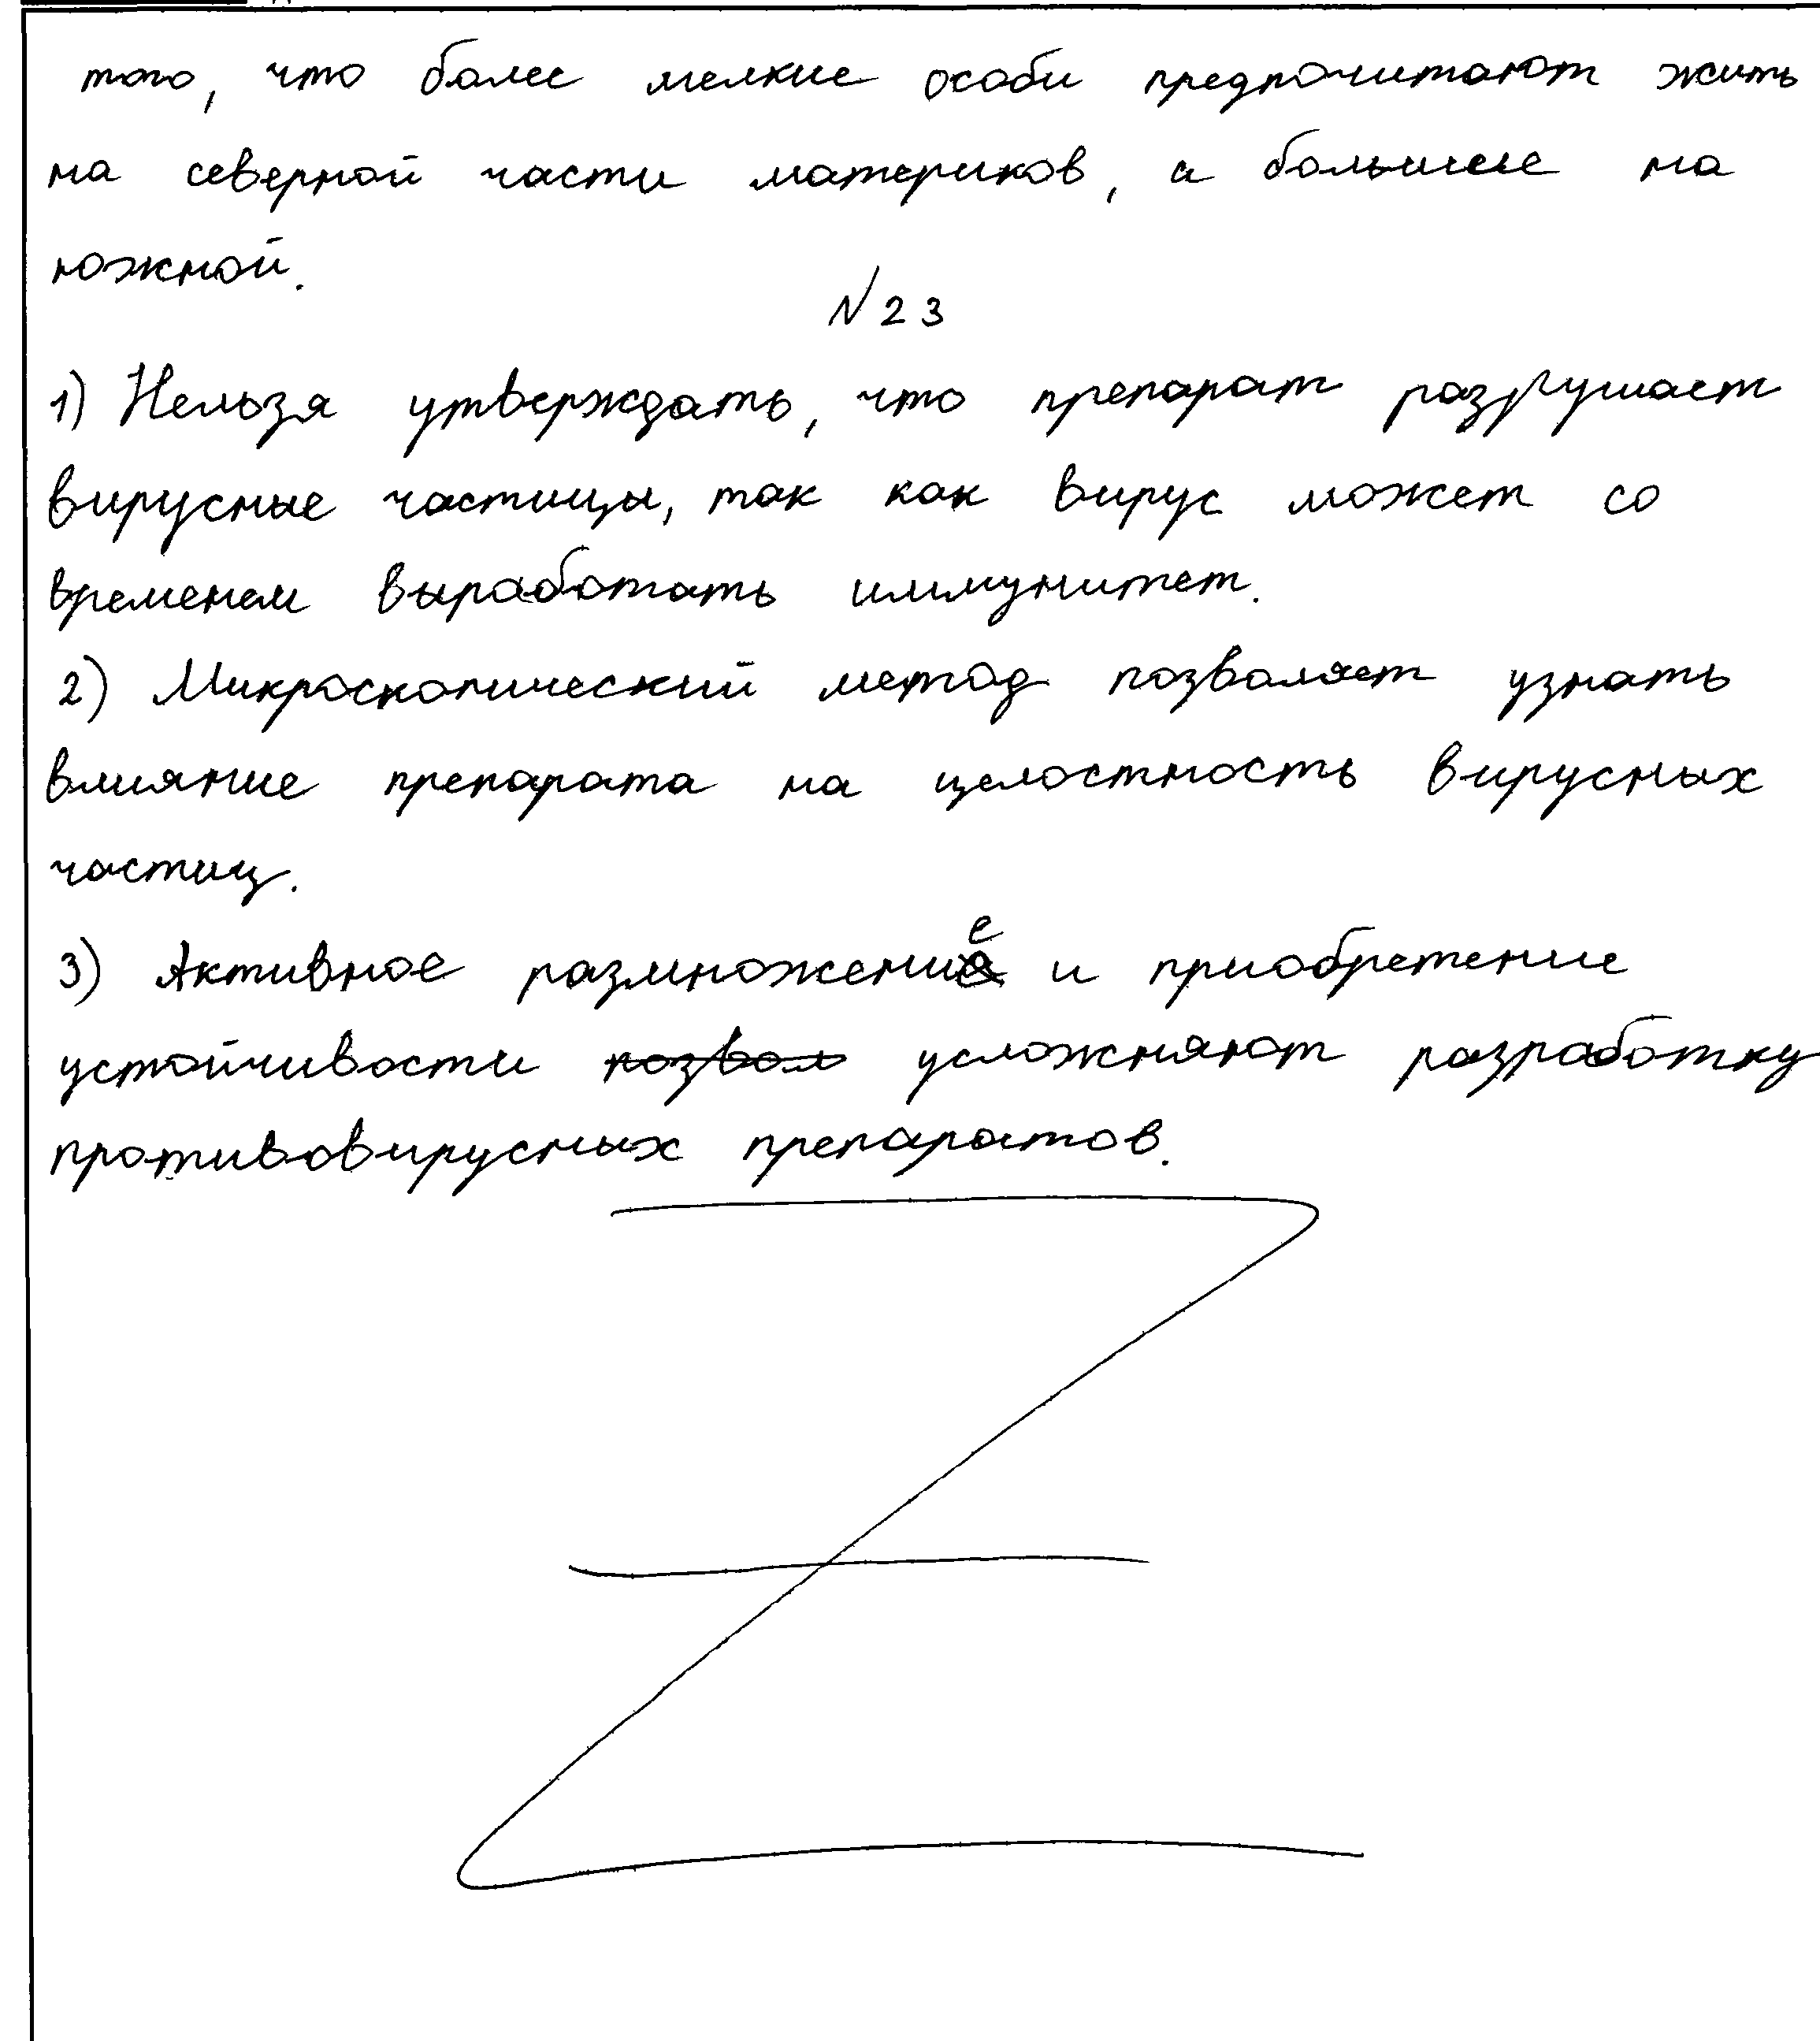 того, что более мелкие особи предпочитают жить
на северной части материков, а большие на
южной.
№ 23
1) Нельзя утверждать, что препарат разрушает
вирусные частицы, так как вирус может со
временем выработать иммунитет.
2) Микроскопический метод позволяет узнать
влияние препарата на целостность вирусных
частиц.
3) Активное размножение и приобретение
устойчивости позвол усложняют разработку
противовирусных препаратов.